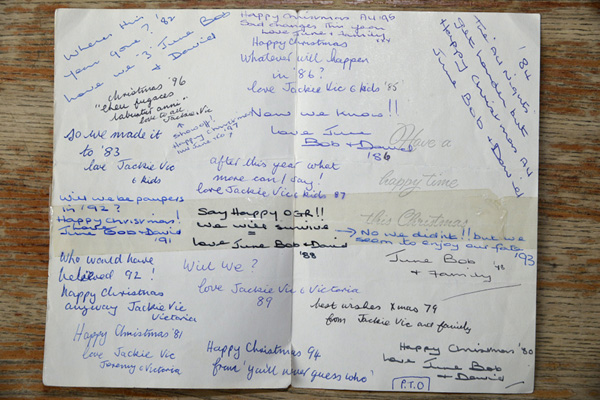 Where has
year gone? '82
Love we '3' June Bob
& David
Happy Christmas All 96
Sad changes this year
love June & family
xxx
Happy Christmas
Whatever will happen
in '86?
love Jackie Vic & kids '85'
The '84
All nights
get harder but
Happy Christmas All
June Bob & David
Christmas '96
"eheu fugaces
labuntur anni"
love to all
Jackie Vic
↑
show off!
Happy Christmas
love June xx '97
Now we know!!
love June
Bob & David
'86
So we made it
to '83
love Jackie Vic
& kids
after this year what
more can I say!
love Jackie Vic & kids 87
Have a
happy time
this Christmas
Will we be paupers
in 1992?
Happy Christmas!
love
June Bob & David
'91
Say Happy OSR!!
We will survive
love June Bob & David
'88
→ No we didn't!! but we
seem to enjoy our fate '93
June Bob
& family
Who would have
believed 92!
happy Christmas
anyway Jackie Vic
Victoria
Will we?
love Jackie Vic & Victoria
89
best wishes Xmas 79
from Jackie Vic and family
Happy Christmas '81
love Jackie Vic
Jeremy & Victoria
Happy Christmas 94
from 'you'll never guess who'
Happy Christmas '80
love June Bob
& David
P.T.O